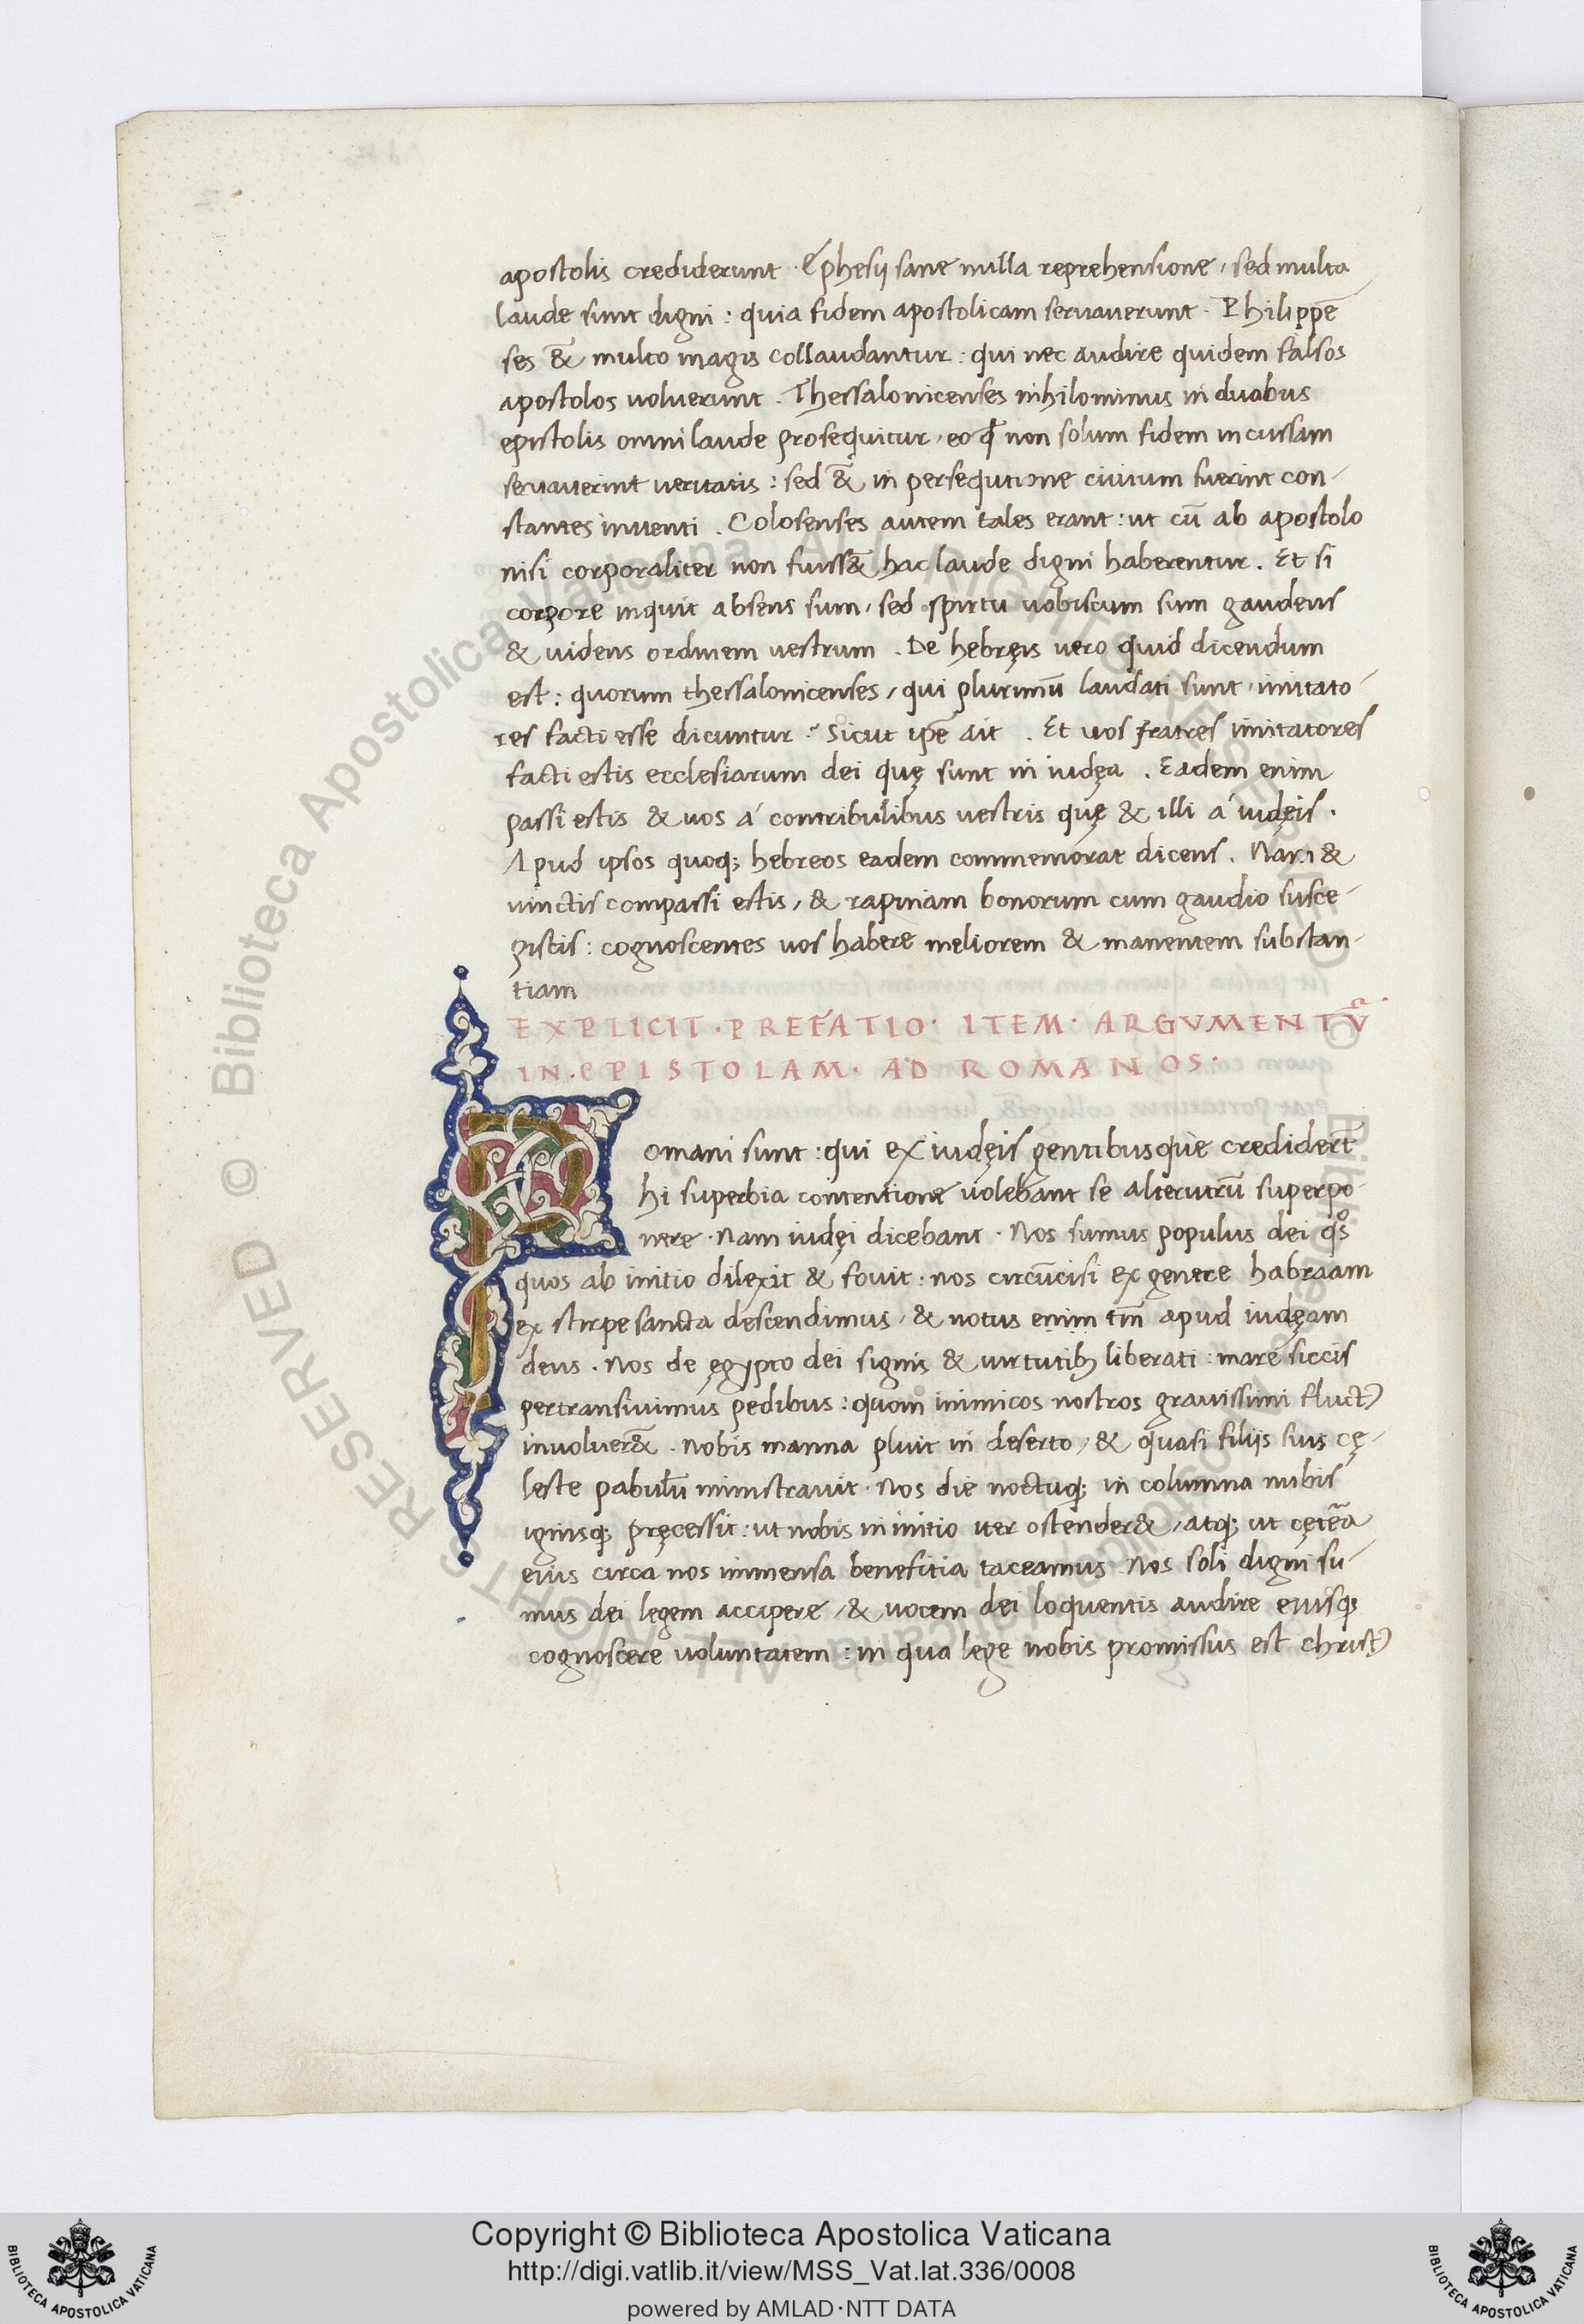 apostolis crediderunt · Ephesij sane nulla reprehensione, sed multa
laude sunt digni : quia fidem apostolicam seruauerunt · Philippē
ses &̄ multo magis collaudantur : qui nec audire quidem falsos
apostolos uoluerunt . Thessalonicenses nihilominus in duabus
epistolis omni laude prosequitur, eo ꝙ non solum fidem incussam
seruauerint ueritatis : sed &̄ in persequtione ciuium fuerint con-
stantes inuenti . Colosenses autem tales erant : ut cū ab apostolo
nisi corporaliter non fuiss&̄ hac laude digni haberentur . Et si
corpore inquit absens sum, sed spirtu uobiscum sum gaudens
& uidens ordinem uestrum . De hebręis uero quid dicendum
est : quorum thessalonicenses, qui plurimū laudati sunt, imitato-
res facti esse dicuntur ? Sicut ipē ait . Et uos fratres imitatores
facti estis ecclesiarum dei quę sunt in iudęa . Eadem enim
passi estis & uos á contribulibus uestris quę & illi á iudęis .
Apud ipsos quoq; hebreos eadem commemorat dicens . Nam &
uinctis compassi estis, & rapinam bonorum cum gaudio susce-
pistis : cognoscentes uos habere meliorem & manentem substan-
tiam
EXPLICIT · PREFATIO · ITEM · ARGVMENTV̄ ·
IN · EPISTOLAM · AD ROMANOS ·
Romani sunt : qui ex iudęis gentibusque credidert̄
hi superbia contentione uolebant se alterutrū superpo-
nere · Nam iudęi dicebant · Nos sumus populus dei qs̊
quos ab initio dilexit & fouit : nos circūcisi ex genere habraam
ex stirpe sancta descendimus, & notus enim tm̄ apud iudęam
deus . Nos de ęgypto dei signis & uirtutibꝫ liberati : mare siccis
pertransiuimus pedibus : quom inimicos nostros grauissimi fluctꝰ
inuoluer&̄ . Nobis manna pluit in deserto, & quasi filijs suis cę-
leste pabulū ministrauit · Nos die noctuq; in columna nubis
ignisq; pręcessit : ut nobis in initio iter ostender&, atq; ut cętēa
eius circa nos immensa benefitia taceamus . Nos soli digni su-
mus dei legem accipere, & uocem dei loquentis audire eiusq;
cognoscere uoluntatem : in qua lege nobis promissus est christꝰ
Copyright © Biblioteca Apostolica Vaticana
http://digi.vatlib.it/view/MSS_Vat.lat.336/0008
powered by AMLAD·NTT DATA